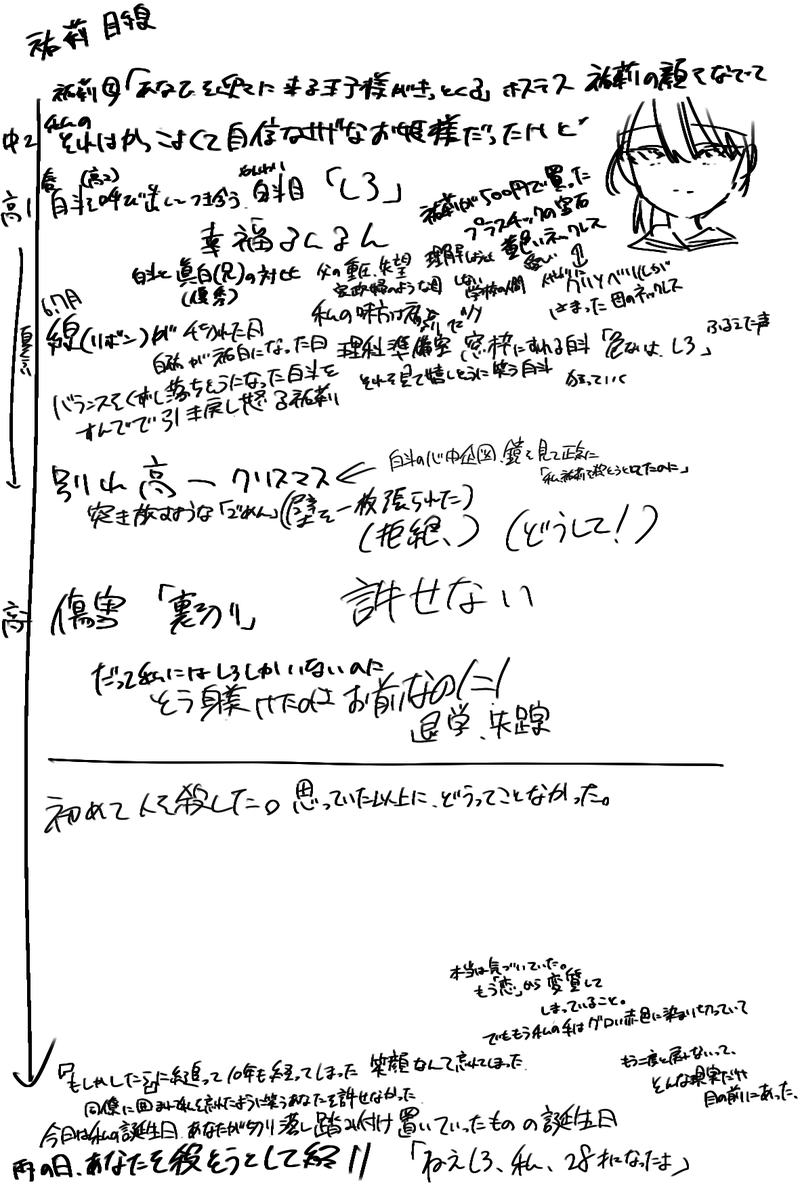 祐莉 目線
祐莉母「あなたを迎えに来る王子様がきっとくる」ホステス 祐莉の顔をなでて
中2 私の
それはかっこよくて自信なさげなお姫様だったけど
春 (高2)
高1 白斗を呼び出しつき合う。白斗目「しろ」
幸福なにるん
祐莉が500円で買った
プラスチックの宝石
黄色いネックレス
白斗と真白(兄)の対比
(優秀)
父の重圧、失望
学校の人間
はさまった母のネックレス
私の味方は
6.7月
線(リボン)が
になった日 理科準備室 窓枠にすわる白斗「危ないよ、しろ」
ふるえた声
それを見て嬉しそうに笑う白斗
バランスをくずし落ちそうになった白斗を
すんでで引き戻し怒る祐莉
別れ 高一 クリスマス ←
白斗の心中企図、鏡を見て正気に
「私、祐莉を殺そうとしてたのに」
突き放すような「ごめん」(壁を一枚張られた)
(拒絶、) (どうして!)
高 傷害 「裏切り」 許せない
だって私にはしろしかいないのに
そう躾けたのはお前なのに!
退学、失踪
初めて人を殺した。思っていた以上に、どうってことなかった。
本当は気づいていた。
もう「恋」から変質して
しまっていること。
でももう私の手はグロい赤色に染まり切っていて
もう二度と届かないって、
そんな現実だけ
目の前にあった。
「もしかしたら」に縋って10年も経ってしまった 笑顔なんて忘れてしまった
同僚に囲まれ私を忘れたように笑うあなたを許せなかった
今日は私の誕生日 あなたが切り落し踏み付け置いていったものの誕生日
雨の日、あなたを殺そうとして終り 「ねえしろ、私、28才になったよ」